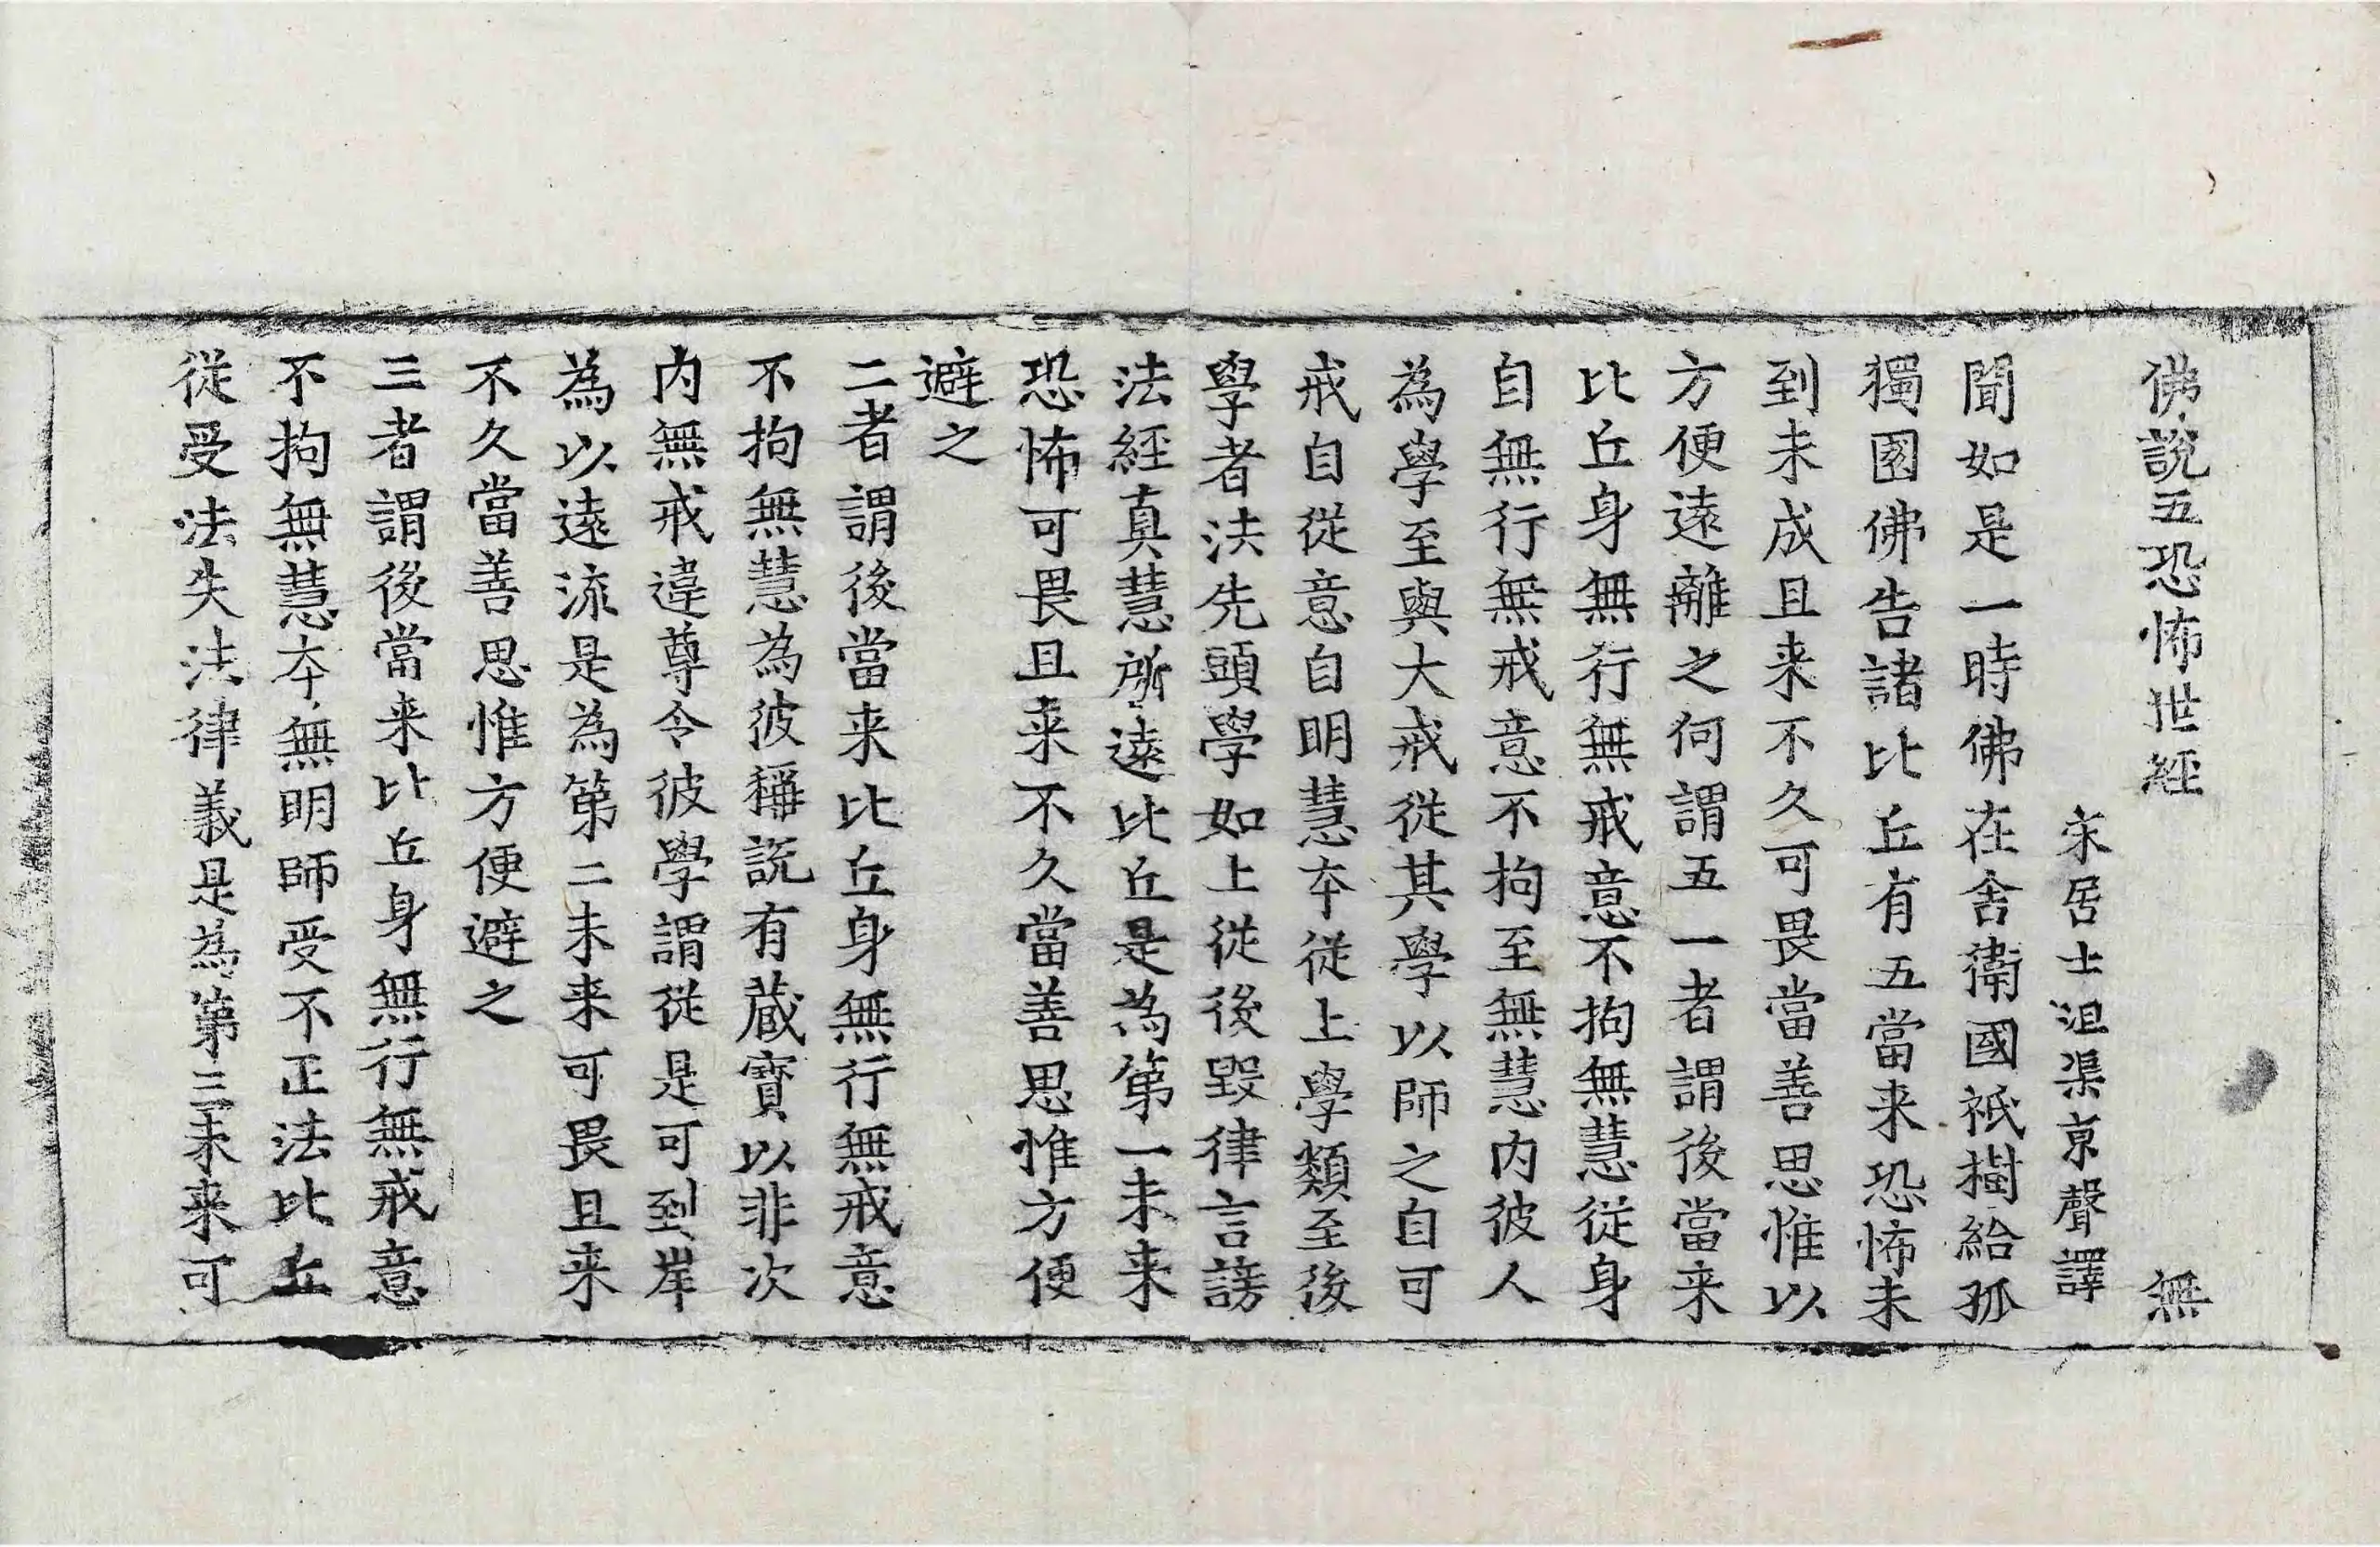 佛說五恐怖世經 無
宋居士沮渠京聲譯
聞如是一時佛在舍衛國祇樹給孤
獨園佛告諸比丘有五當来恐怖未
到未成且来不久可畏當善思惟以
方便遠離之何謂五一者謂後當来
比丘身無行無戒意不拘無慧從身
自無行無戒意不拘至無慧内彼人
為學至與大戒從其學以師之自可
戒自從意自明慧夲從上學類至後
學者法先頭學如上從後毀律言謗
法經真慧所遠比丘是為第一未来
恐怖可畏且来不久當善思惟方便
避之
二者謂後當来比丘身無行無戒意
不拘無慧為彼稱說有蔵寶以非次
内無戒違尊令彼學謂從是可到岸
為以遠流是為第二未来可畏且来
不久當善思惟方便避之
三者謂後當来比丘身無行無戒意
不拘無慧夲無明師受不正法比丘
從受法失法律義是為第三未来可